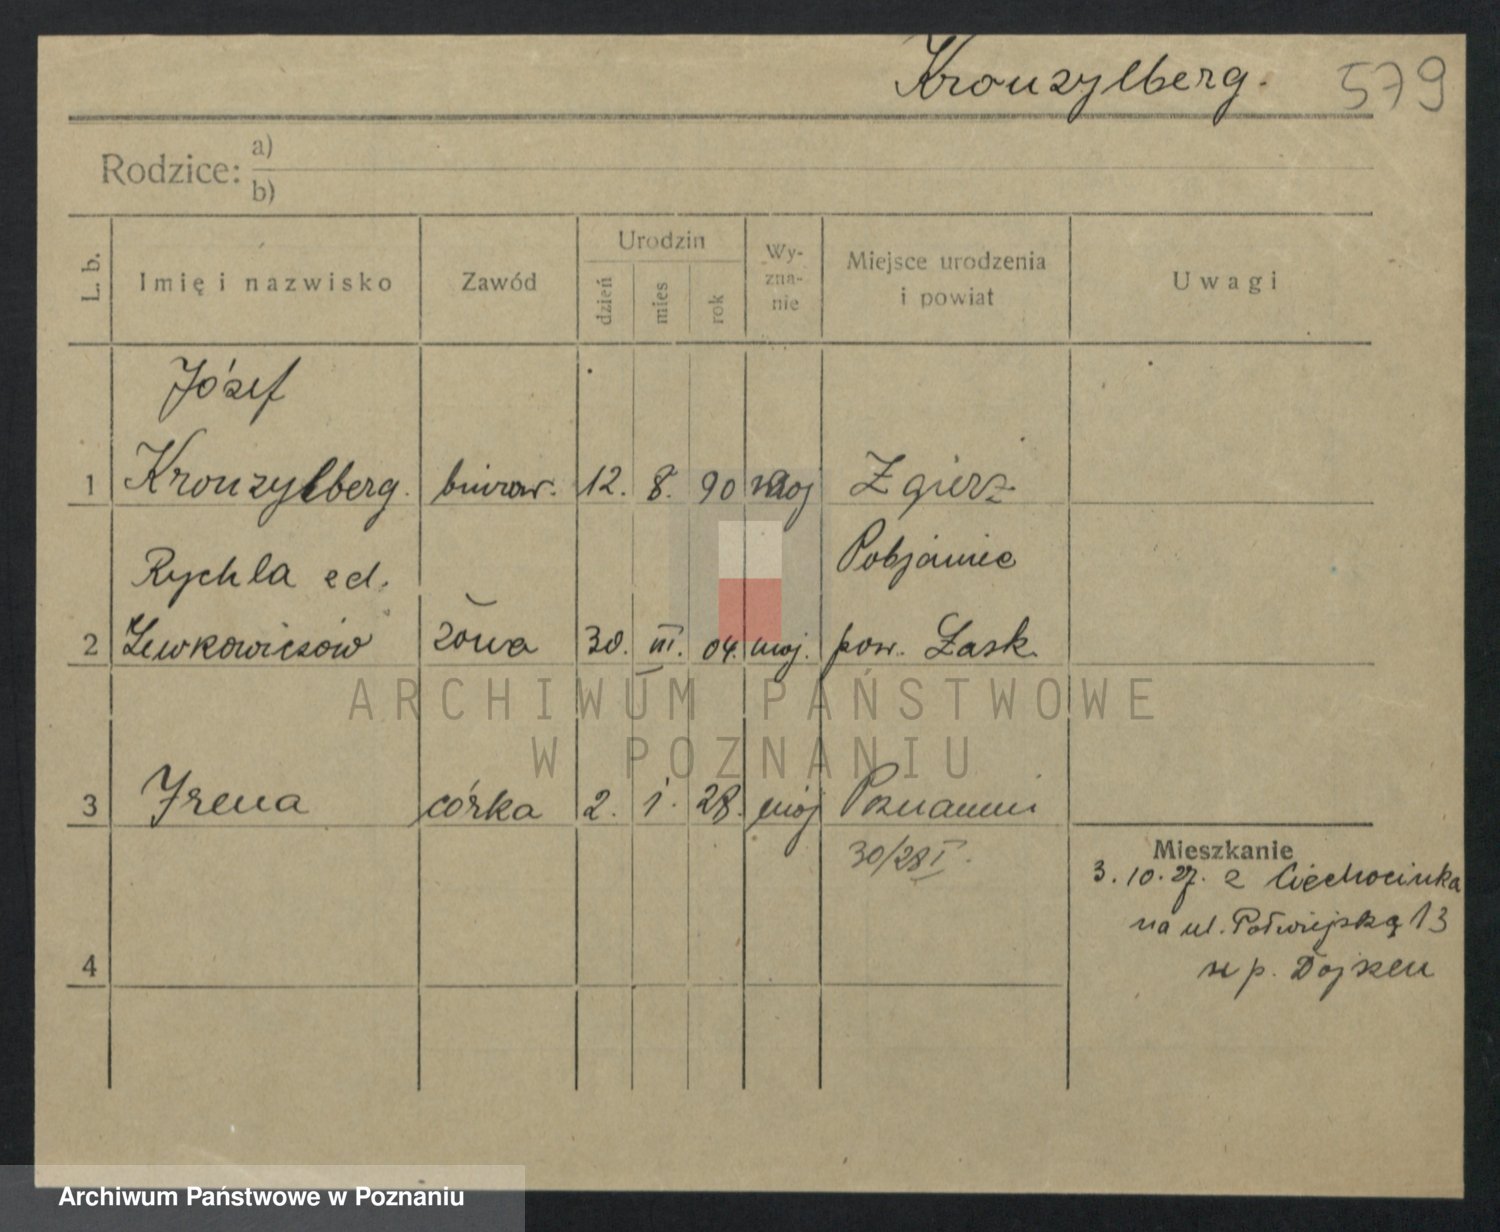 Kronzylberg. 579
Rodzice: a)
b)
L. b. Imię i nazwisko Zawód Urodzin dzień mies rok Wy-zna-nie Miejsce urodzenia i powiat Uwagi
Józef
1 Kronzylberg. biurow. 12. 8. 90 moj Zgierz
Rychla zd. Pobjanice
2 Lewkowiczów żona 30. III. 04. moj. pow. Łask
ARCHIWUM PAŃSTWOWE
W POZNANIU
3 Irena córka 2. 1. 28. moj Poznaniu
30/28 I.
Mieszkanie
3.10.27. z Ciechocinka
na ul. Półwiejską 13
4
Archiwum Państwowe w Poznaniu